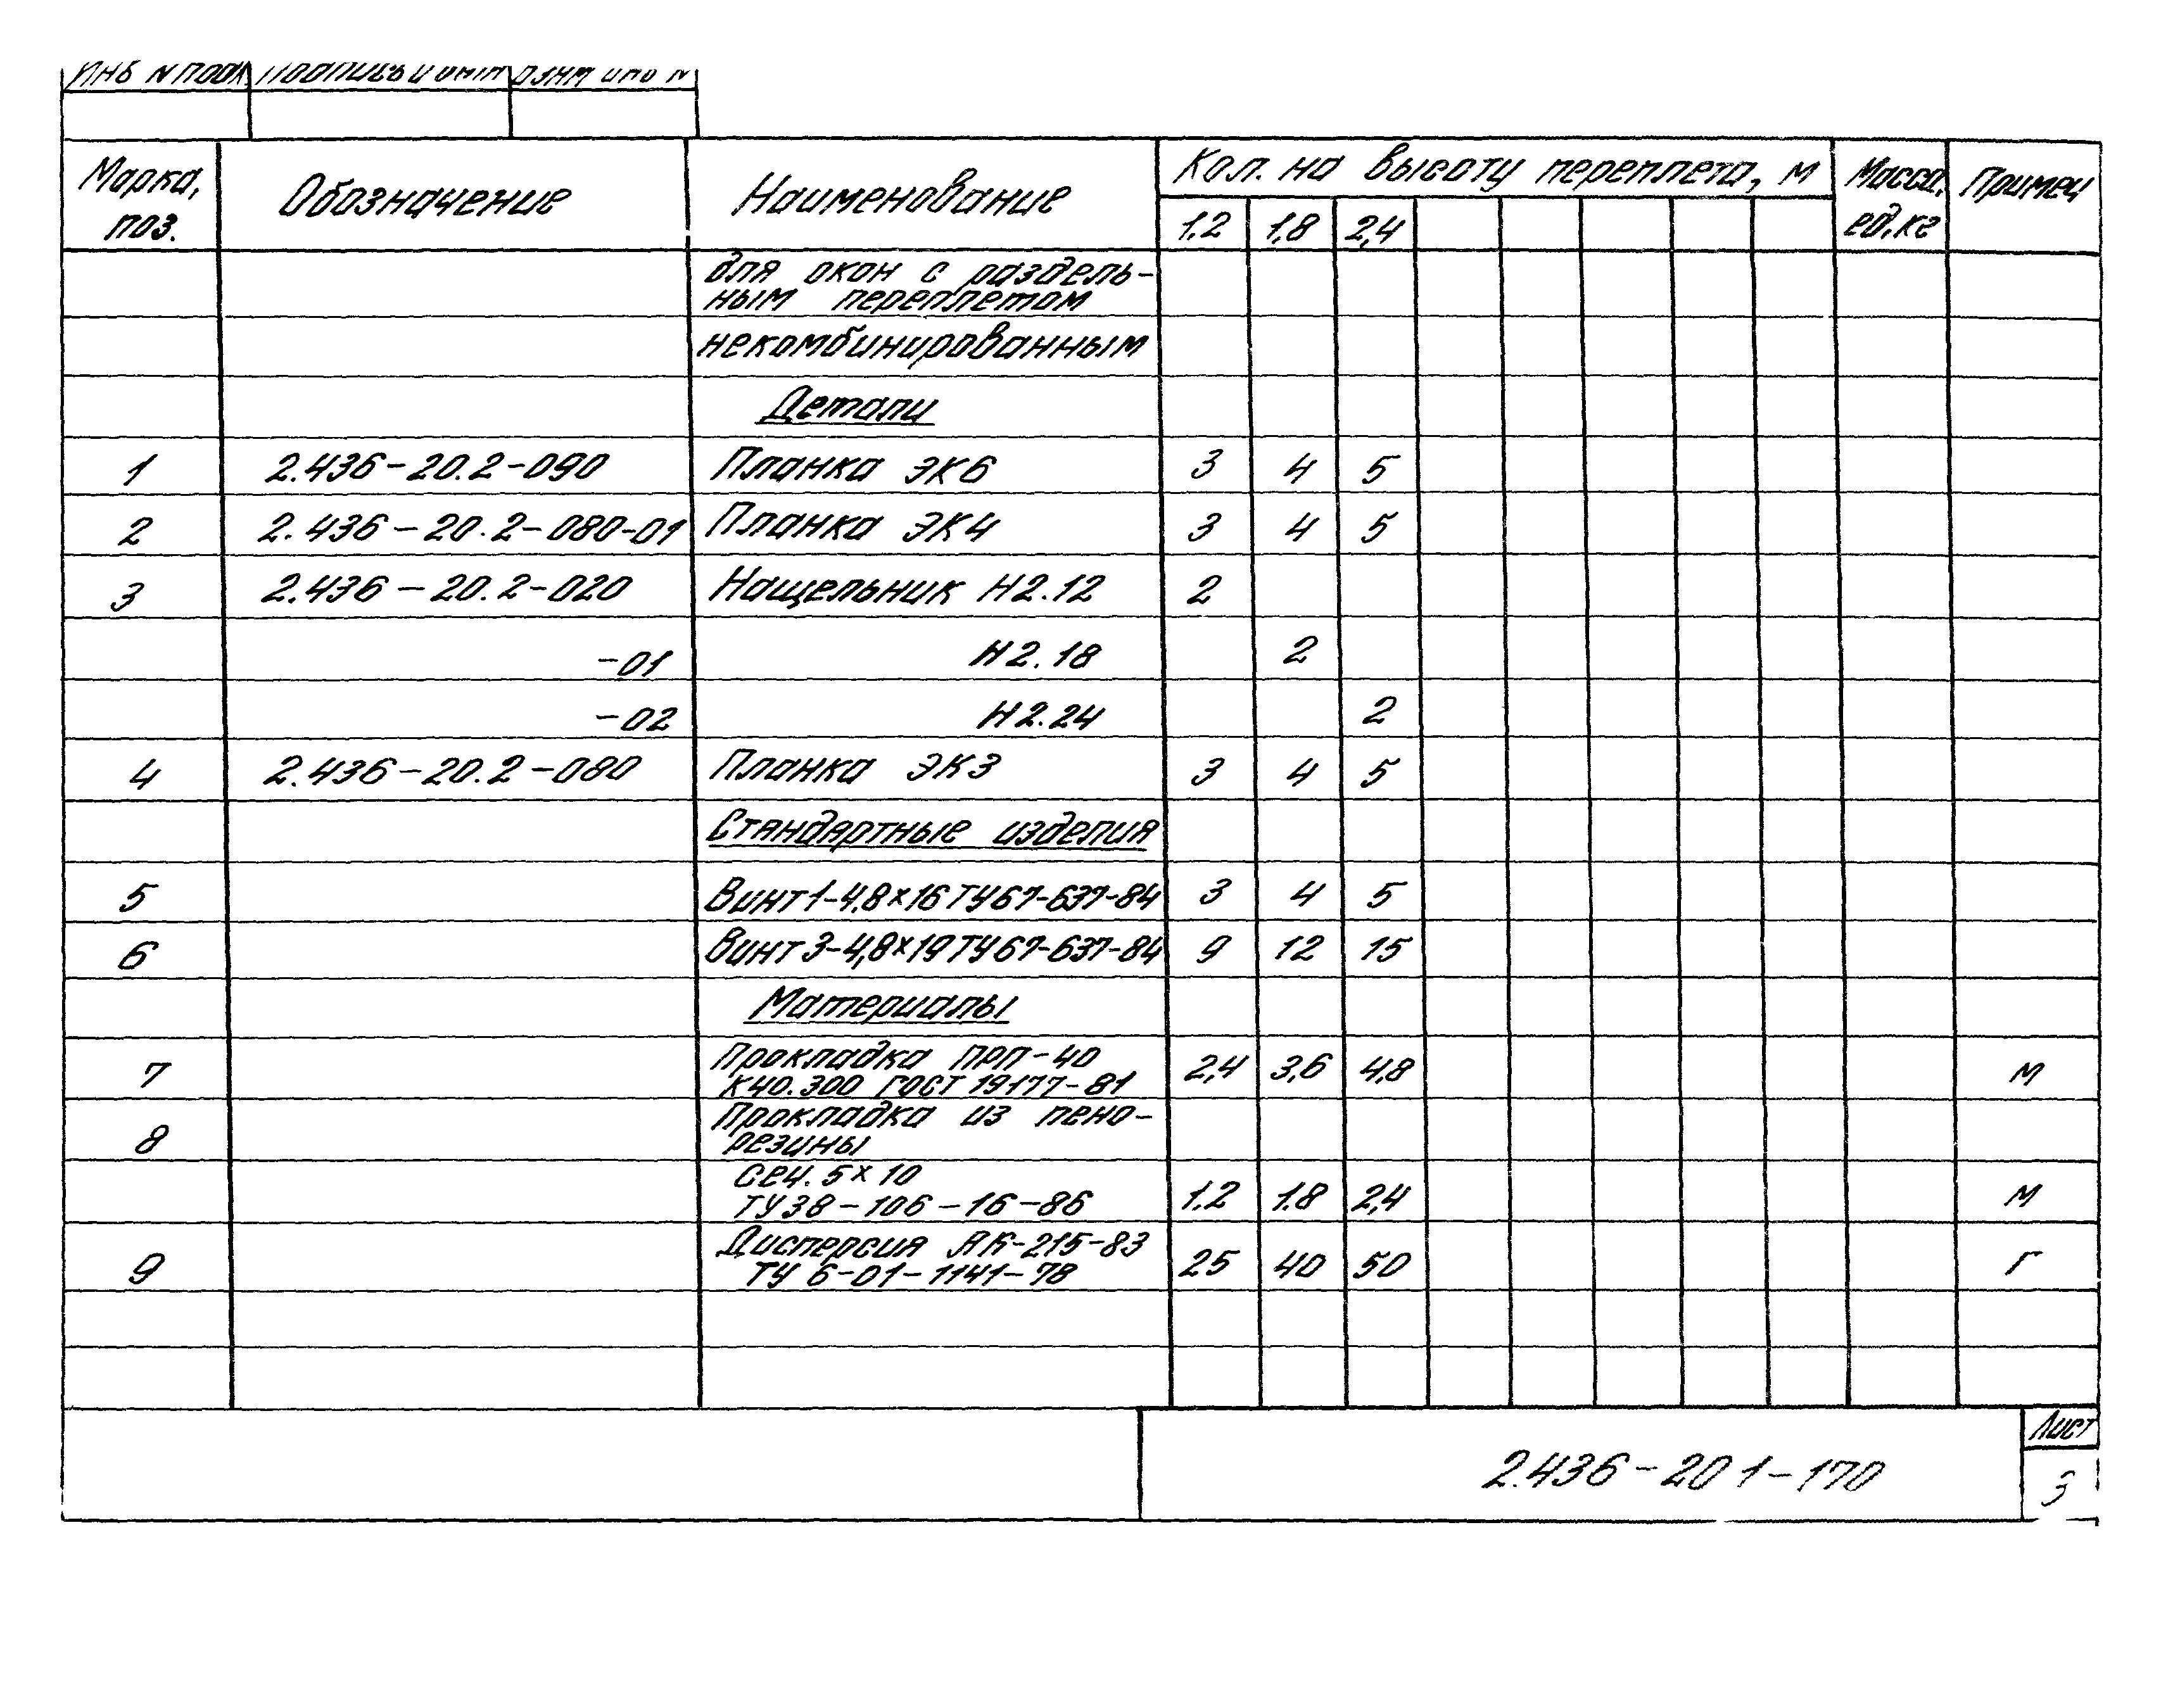 Инв N подл Подпись и дата Взам инв N
Марка, поз. Обозначение Наименование Кол. на высоту переплета, м Масса, ед, кг Примеч
1,2 1,8 2,4
для окон с раздель-
ным переплетом
некомбинированным
Детали
1 2.436-20.2-090 Планка ЭК6 3 4 5
2 2.436-20.2-080-01 Планка ЭК4 3 4 5
3 2.436-20.2-020 Нащельник Н2.12 2
-01 Н2.18 2
-02 Н2.24 2
4 2.436-20.2-080 Планка ЭК3 3 4 5
Стандартные изделия
5 Винт 1-4,8×16 ТУ67-637-84 3 4 5
6 Винт 3-4,8×19 ТУ67-637-84 9 12 15
Материалы
7 Прокладка ПРП-40
К40.300 ГОСТ 19177-81 2,4 3,6 4,8 м
8 Прокладка из пено-
резины
сеч. 5×10
ТУ38-106-16-86 1.2 1.8 2,4 м
9 Дисперсия АК-215-83
ТУ 6-01-1141-78 25 40 50 г
2.436-20 1-170
Лист
3